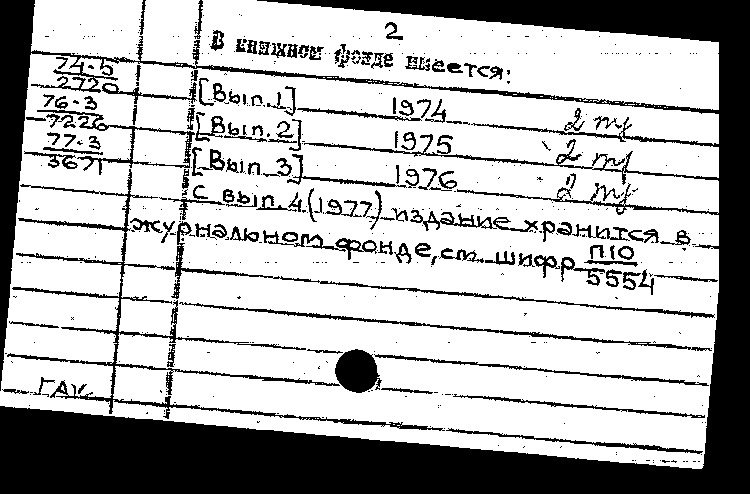 2
В книжном фонде имеется:
74-5
2720
[Вып. 1] 1974 2
76-3
7226
[Вып. 2] 1975 2
77-3
3671
[Вып. 3] 1976 2
с вып. 4 (1977) издание хранится в
журнальном фонде, см. шифр П10
5554